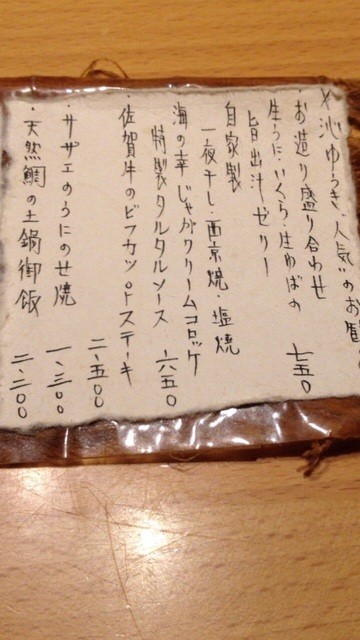 沁ゆうき、人気のお
・お造り盛り合わせ
生うに、いくら、生ゆばの 七五〇
旨出汁ゼリー
自家製
一夜干し・西京焼・塩焼
海の幸じゃがクリームコロッケ
特製タルタルソース 六五〇
・佐賀牛のビフカツorステーキ 二、五〇〇
・サザエのうにのせ焼 一、三〇〇
・天然鯛の土鍋御飯 二、二〇〇